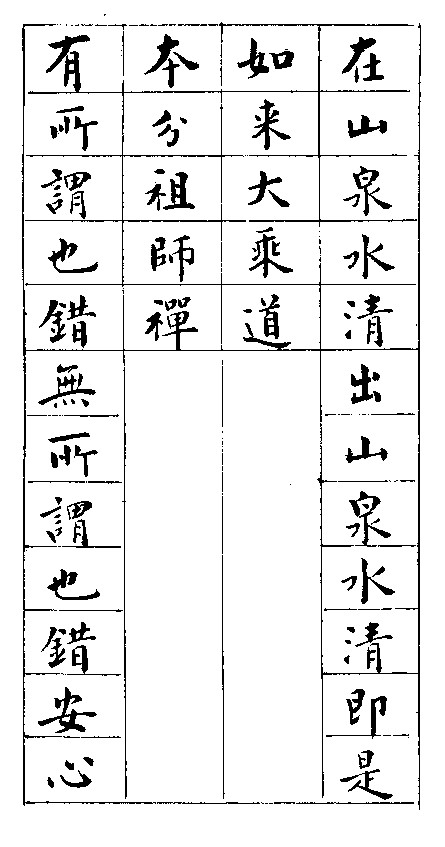 在山泉水清出山泉水清即是
如来大乘道
本分祖師禪
有所謂也錯無所謂也錯安心